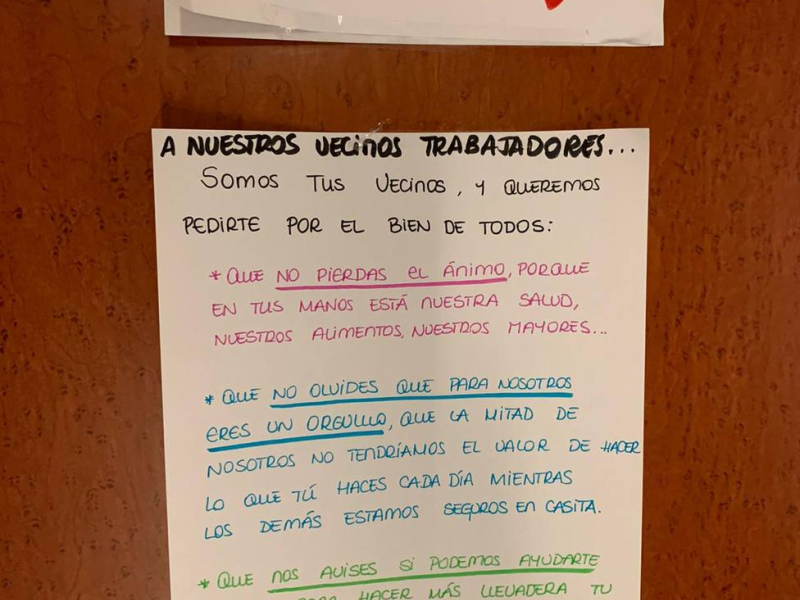 A NUESTROS VECINOS TRABAJADORES...
SOMOS TUS VECINOS, Y QUEREMOS
PEDIRTE POR EL BIEN DE TODOS:
* QUE NO PIERDAS EL ÁNIMO, PORQUE
EN TUS MANOS ESTÁ NUESTRA SALUD,
NUESTROS ALIMENTOS, NUESTROS MAYORES...
* QUE NO OLVIDES QUE PARA NOSOTROS
ERES UN ORGULLO, QUE LA MITAD DE
NOSOTROS NO TENDRÍAMOS EL VALOR DE HACER
LO QUE TÚ HACES CADA DÍA MIENTRAS
LOS DEMÁS ESTAMOS SEGUROS EN CASITA.
* QUE NOS AVISES SI PODEMOS AYUDARTE
PARA HACER MÁS LLEVADERA TU